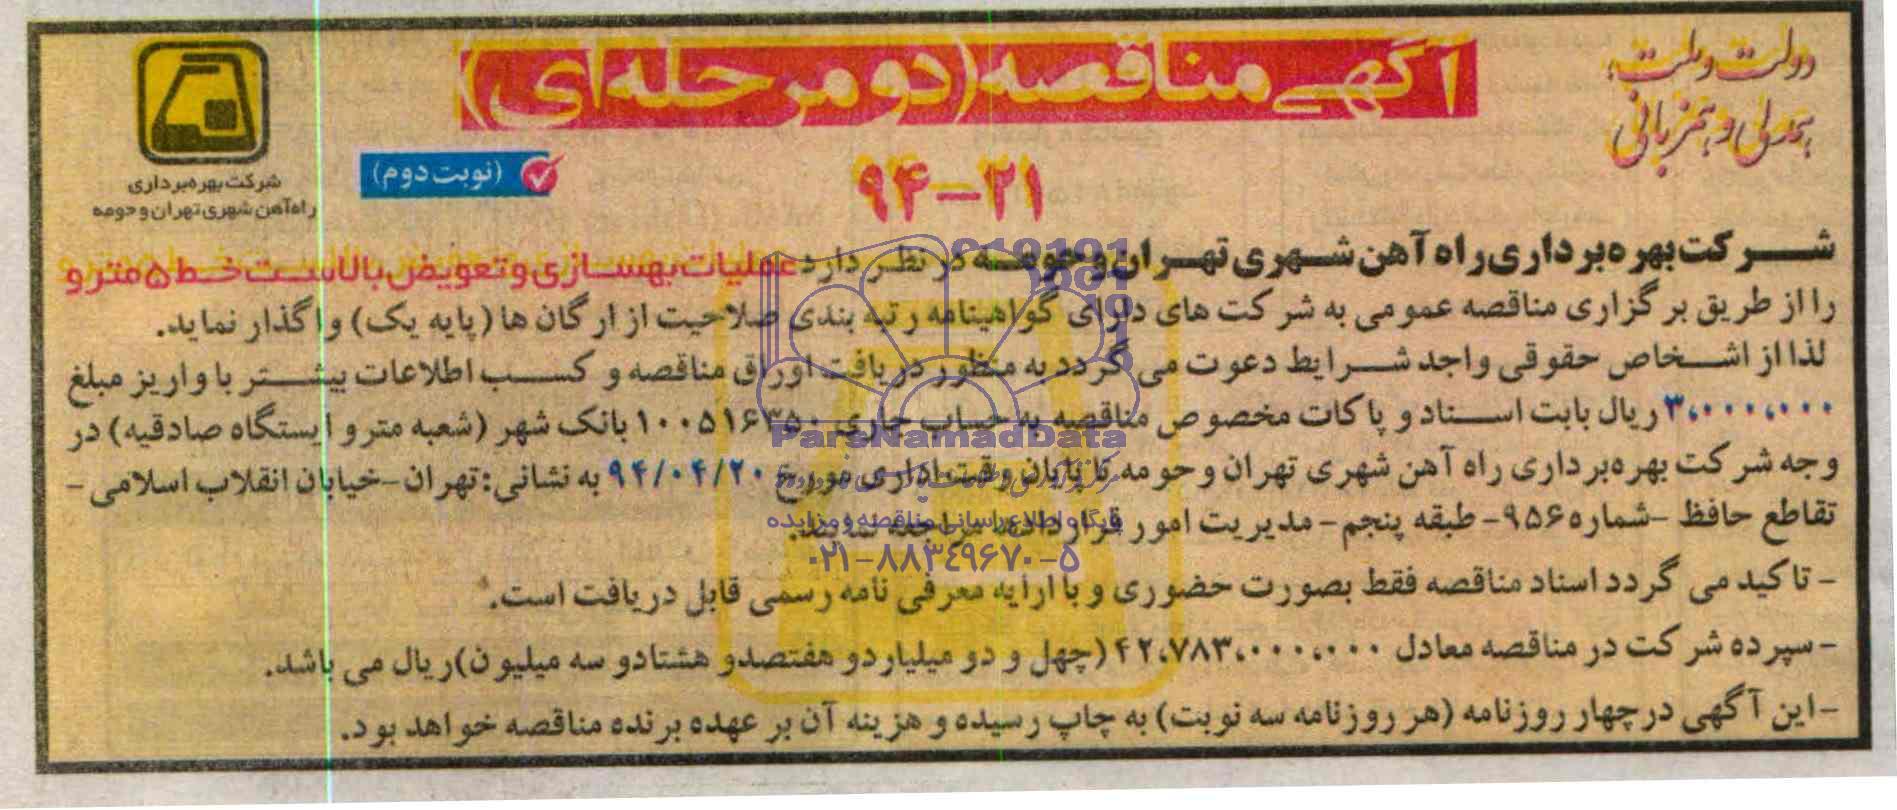 دولت و ملت،
همدلی و همزبانی
آگهی مناقصه (دو مرحله ای)
۹۴-۲۱
(نوبت دوم)
شرکت بهره‌برداری
راه‌آهن شهری تهران و حومه
شرکت بهره‌برداری راه آهن شهری تهران و حومه در نظر دارد عملیات بهسازی و تعویض بالاست خط ۵ مترو
را از طریق برگزاری مناقصه عمومی به شرکت های دارای گواهینامه رتبه بندی صلاحیت از ارگان ها (پایه یک) واگذار نماید.
لذا از اشخاص حقوقی واجد شرایط دعوت می گردد به منظور دریافت اوراق مناقصه و کسب اطلاعات بیشتر با واریز مبلغ
۳،۰۰۰،۰۰۰ ریال بابت اسناد و پاکات مخصوص مناقصه به حساب جاری ۱۰۰۵۱۶۳۵۰ بانک شهر (شعبه مترو ایستگاه صادقیه) در
وجه شرکت بهره‌برداری راه آهن شهری تهران و حومه تا پایان وقت اداری مورخ ۹۴/۰۴/۲۰ به نشانی: تهران -خیابان انقلاب اسلامی -
تقاطع حافظ -شماره ۹۵۶- طبقه پنجم- مدیریت امور قراردادها مراجعه نمایند.
- تاکید می گردد اسناد مناقصه فقط بصورت حضوری و با ارایه معرفی نامه رسمی قابل دریافت است.
-سپرده شرکت در مناقصه معادل ۴۲،۷۸۳،۰۰۰،۰۰۰ (چهل و دو میلیارد و هفتصدو هشتادو سه میلیون)ریال می باشد.
-این آگهی در چهار روزنامه (هر روزنامه سه نوبت) به چاپ رسیده و هزینه آن بر عهده برنده مناقصه خواهد بود.
ParsNamadData
پایگاه اطلاع رسانی مناقصه و مزایده
۰۲۱-۸۸۳۴۹۶۷۰-۵